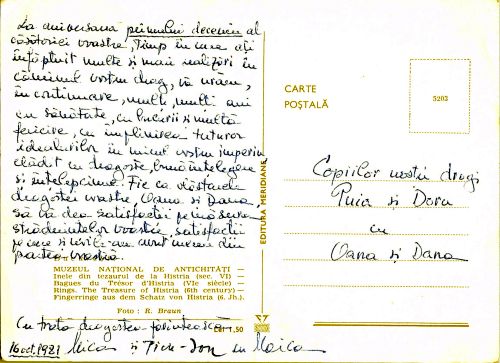 La aniversarea primului deceniu al
căsătoriei voastre, timp în care ați
înfăptuit multe și mari realizări în
căminul vostru drag, vă urăm,
în continuare, mulți, mulți ani
cu sănătate, cu bucurii și multă
fericire, cu împlinirea tuturor
idealurilor în micul vostru imperiu
clădit cu dragoste, bună înțelegere
și înțelepciune. Fie ca vlăstarele
dragostei voastre, Oana și Dana
să vă dea satisfacții pe măsura
strădaniilor voastre, satisfacții
pe care și noi le-am avut mereu din
partea voastră.
MUZEUL NATIONAL DE ANTICHITĂTI —
Inele din tezaurul de la Histria (sec. VI) —
Bagues du Trésor d'Histria (VIe siècle) —
Rings. The Treasure of Histria (6th century) —
Fingerringe aus dem Schatz von Histria (6. Jh.).
Foto : R. Braun
Lei 1,50
Cu toată dragostea părintească
16 oct. 1981 Mica și Picu-Ion cu Maica
EDITURA MERIDIANE
CARTE
POȘTALĂ
5203
Copiilor noștri dragi
Puia și Doru
cu
Oana și Dana